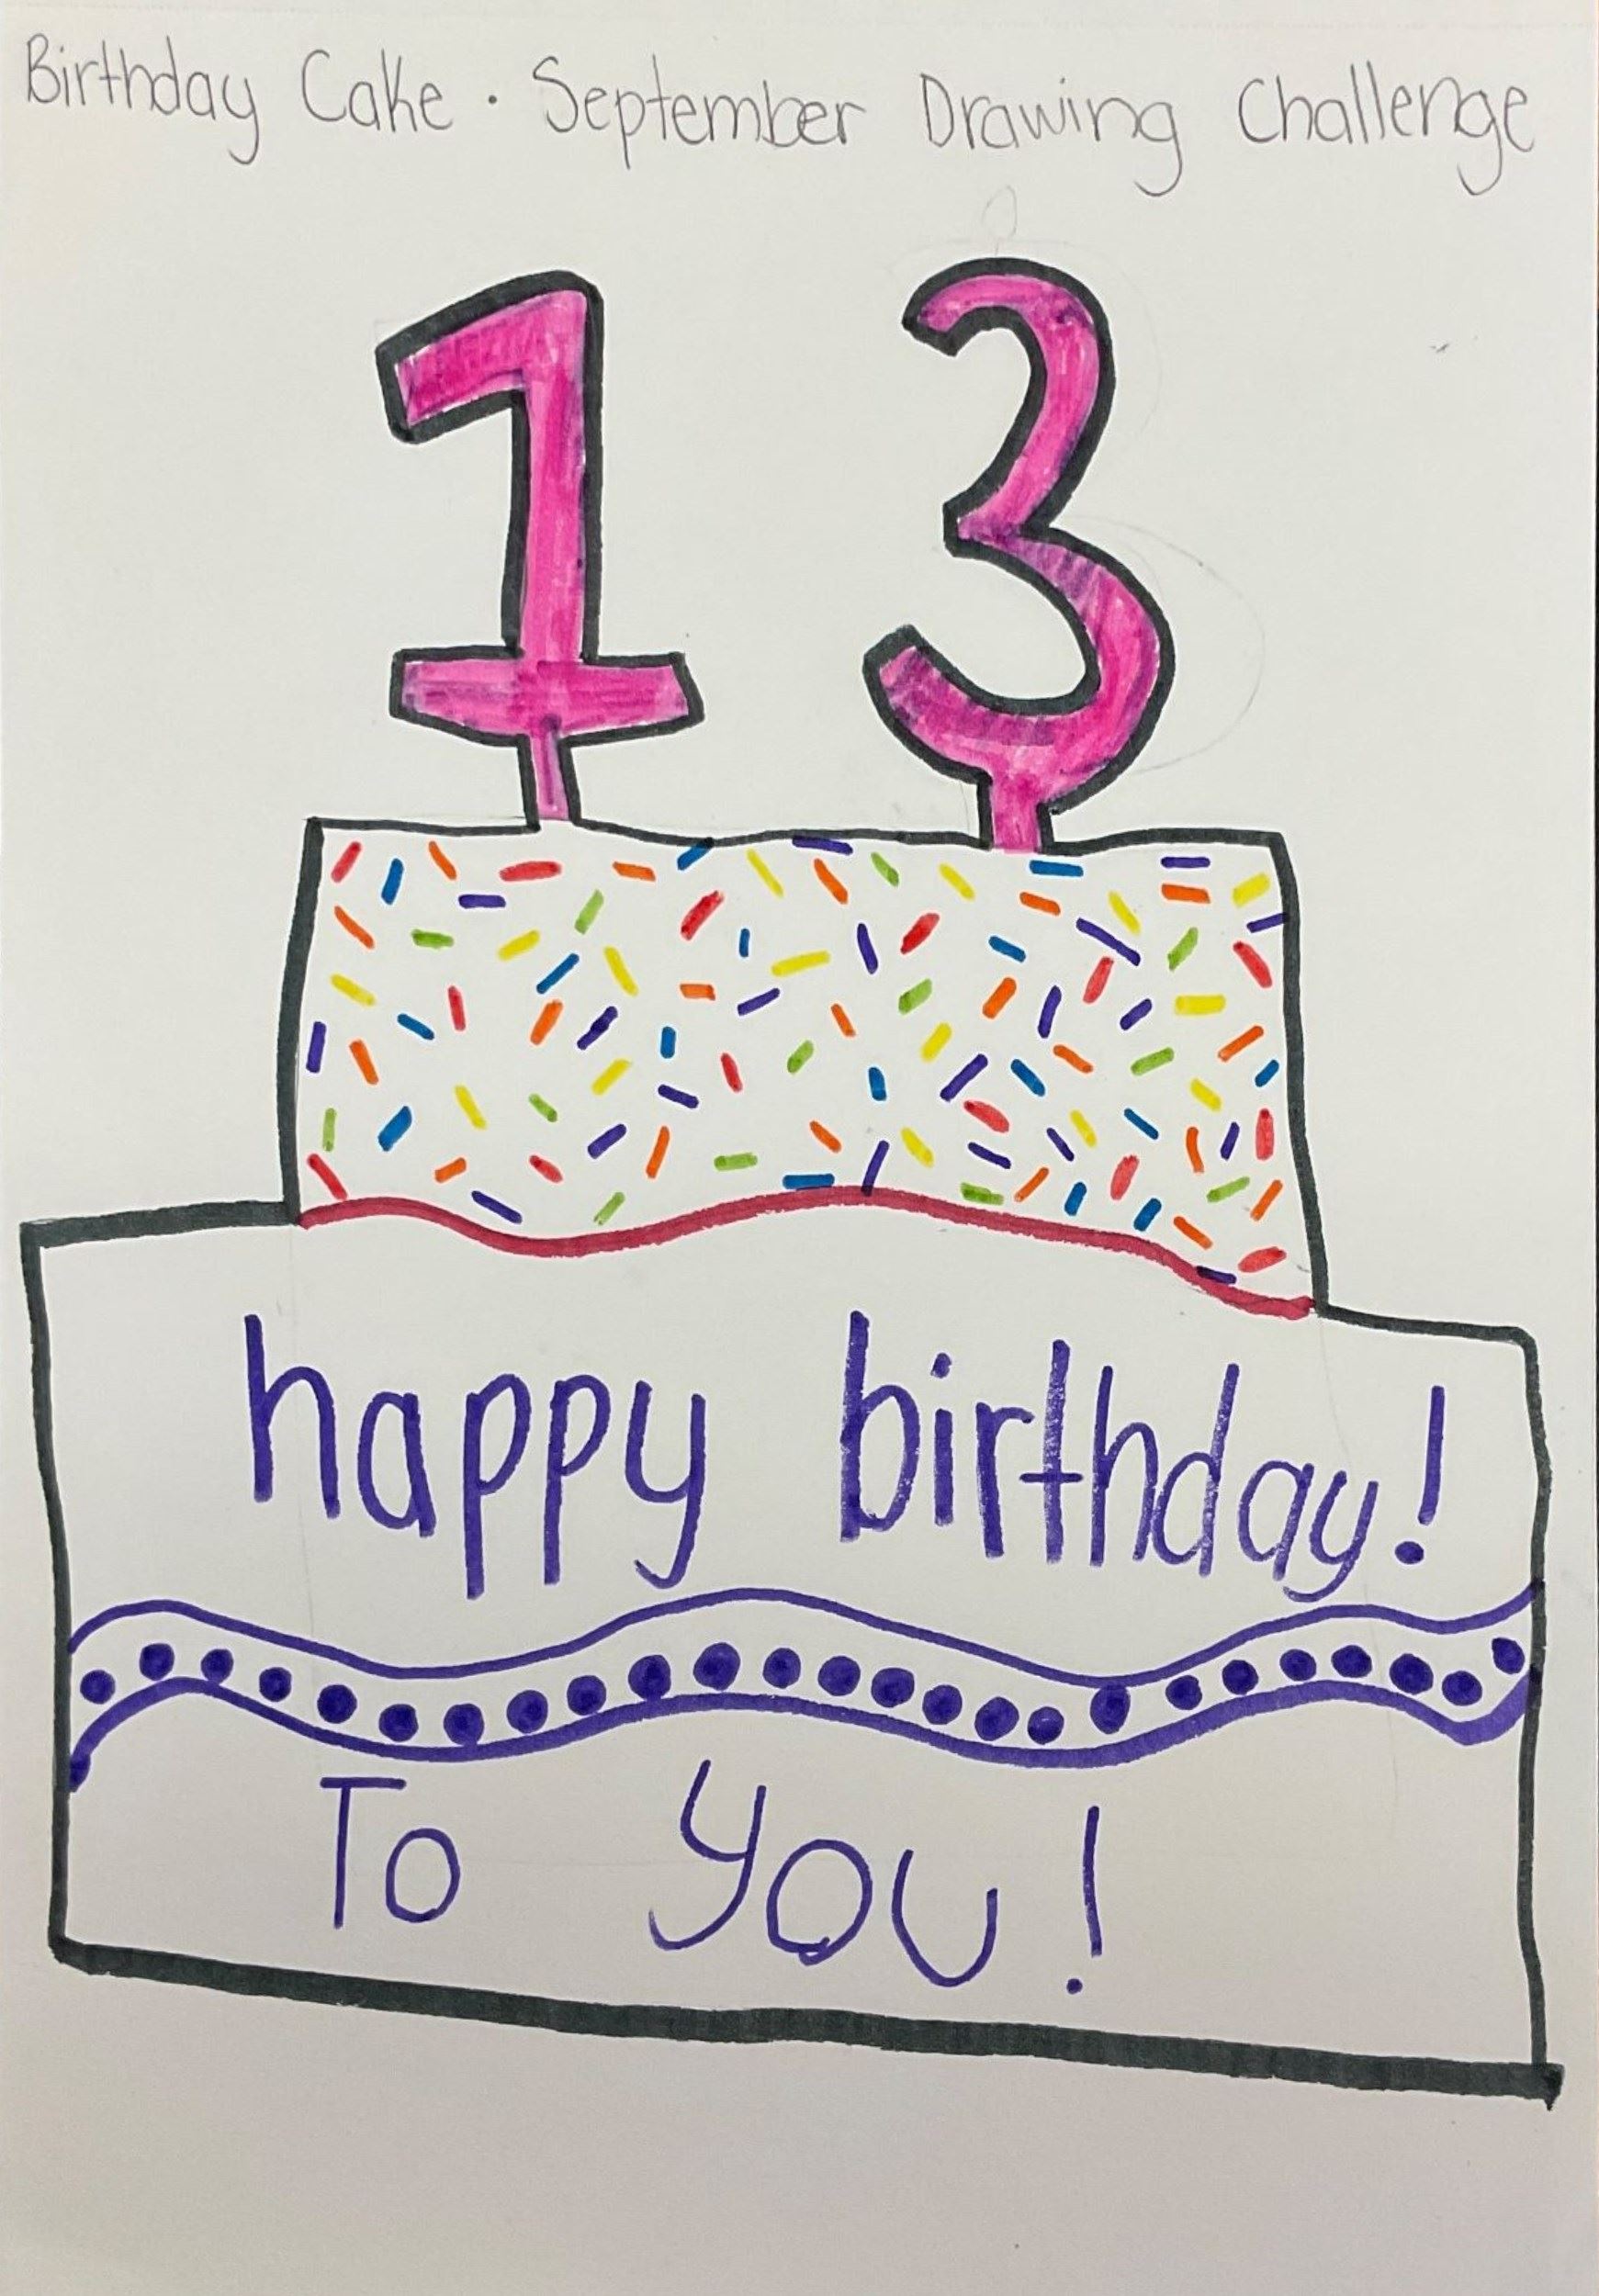 Birthday Cake · September Drawing Challenge
13
happy birthday!
To You!